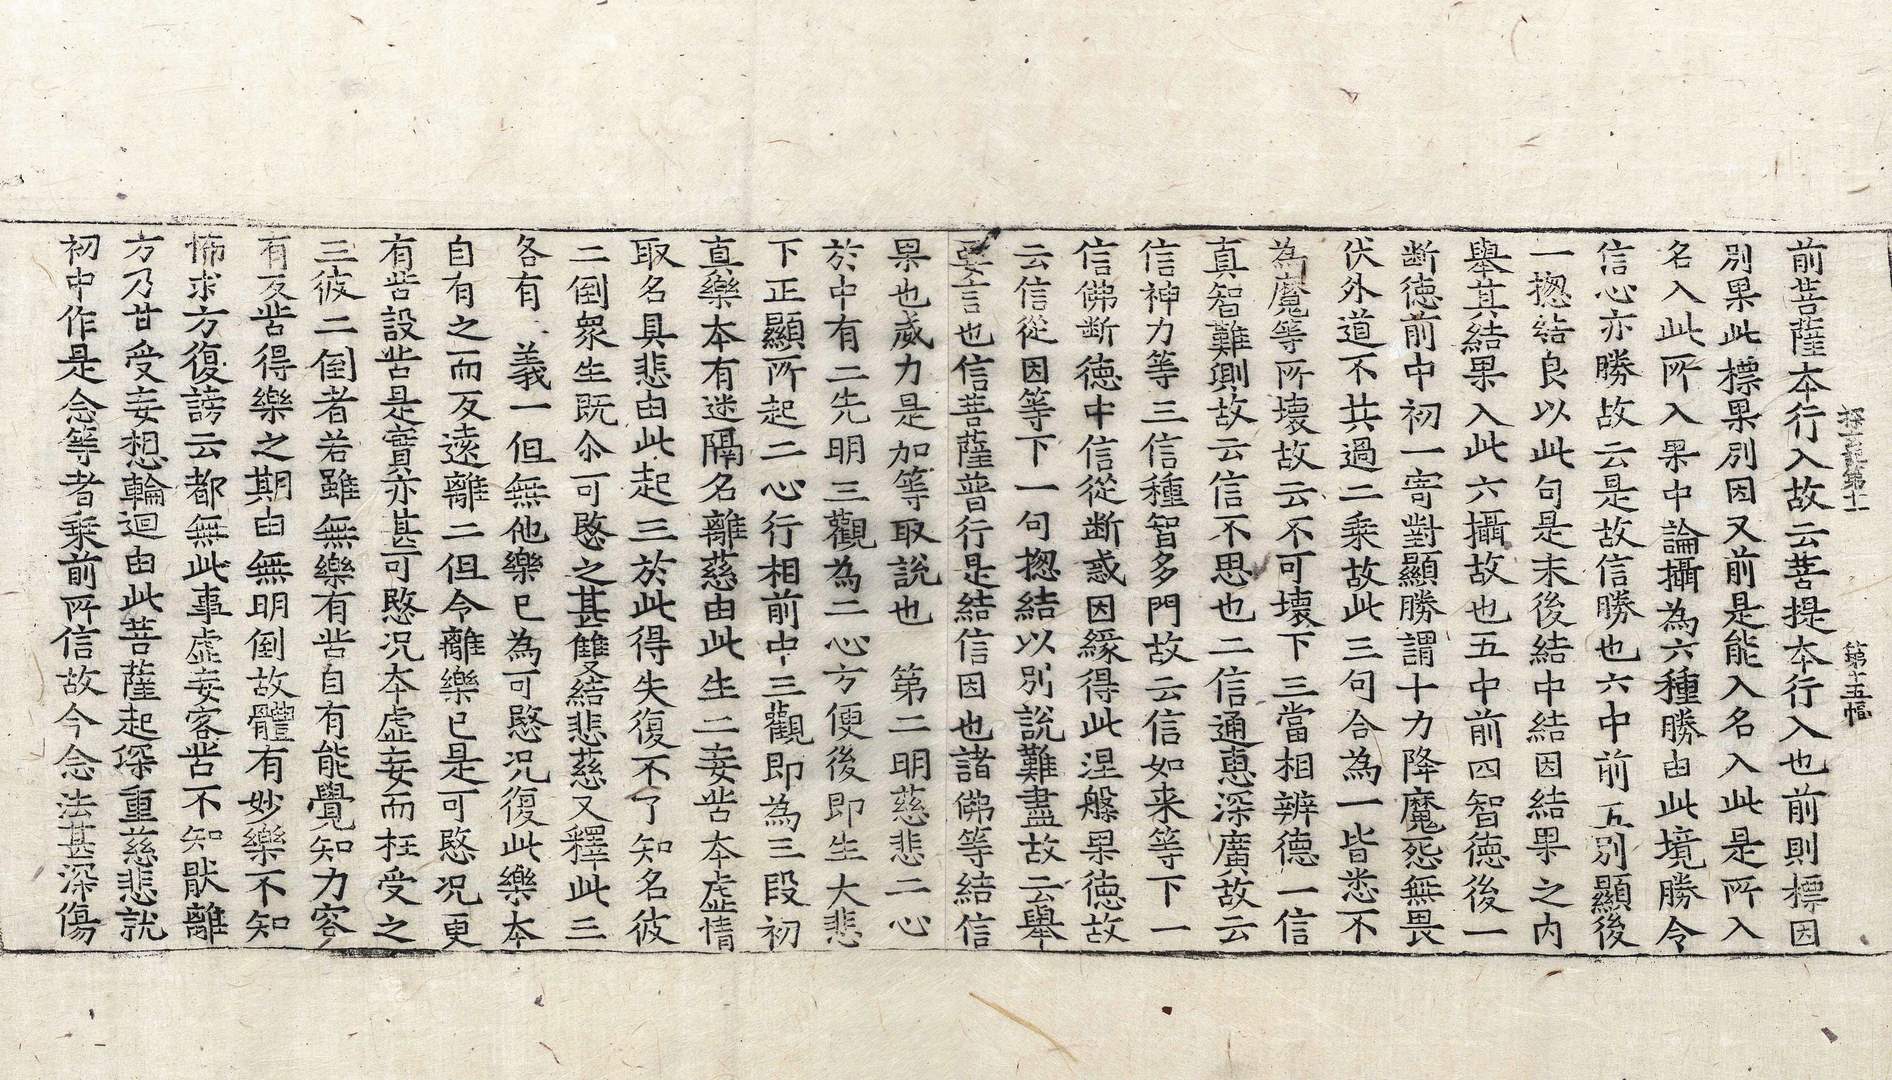 探玄記第十一 第十五幅
前菩薩本行入故云菩提本行入也前則標因
別果此標果別因又前是能入名入此是所入
名入此所入果中論攝為六種勝由此境勝令
信心亦勝故云是故信勝也六中前五別顯後
一揔結良以此句是末後結中結因結果之内
舉其結果入此六攝故也五中前四智徳後一
断徳前中初一寄對顯勝謂十力降魔怨無畏
伏外道不共過二乘故此三句合為一皆悉不
為魔等所壞故云不可壞下三當相辨德一信
真智難測故云信不思也二信通恵深廣故云
信神力等三信種智多門故云信如来等下一
信佛断徳中信從断惑因緣得此涅槃果徳故
云信從因等下一句揔結以別說難盡故云舉
要言也信菩薩普行是結信因也諸佛等結信
果也威力是加等取說也 第二明慈悲二心
於中有二先明三觀為二心方便後即生大悲
下正顯所起二心行相前中三觀即為三段初
真樂本有迷隔名離慈由此生二妄苦本虛情
取名具悲由此起三於此得失復不了知名彼
二倒衆生既尒可愍之甚雙結悲慈又釋此三
各有 義一但無他樂已為可愍况復此樂本
自有之而反遠離二但令離樂已是可愍况更
有苦設苦是實亦甚可愍况本虛妄而枉受之
三彼二倒者若雖無樂有苦自有能覺知力容
有反苦得樂之期由無明倒故體有妙樂不知
怖求方復謗云都無此事虛妄客苦不知猒離
方乃甘受妄想輪迴由此菩薩起深重慈悲就
初中作是念等者乘前所信故今念法甚深傷